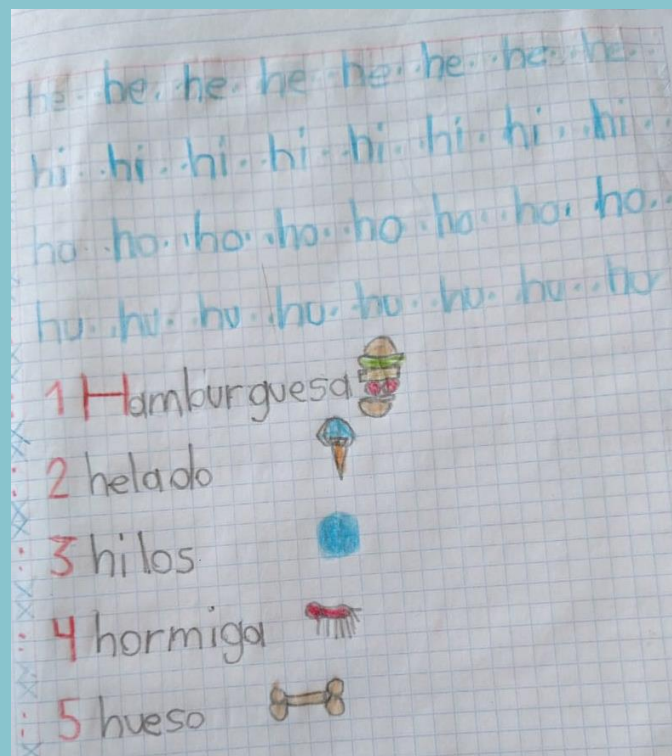 he he. he. he he. he. he. he.
hi. hi. hi. hi. hi. hi. hi. hi.
ho. ho. ho. ho. ho. ho. ho. ho.
hu. hu. hu. hu. hu. hu. hu. hu
1 Hamburguesa
2 helado
3 hilos
4 hormiga
5 hueso